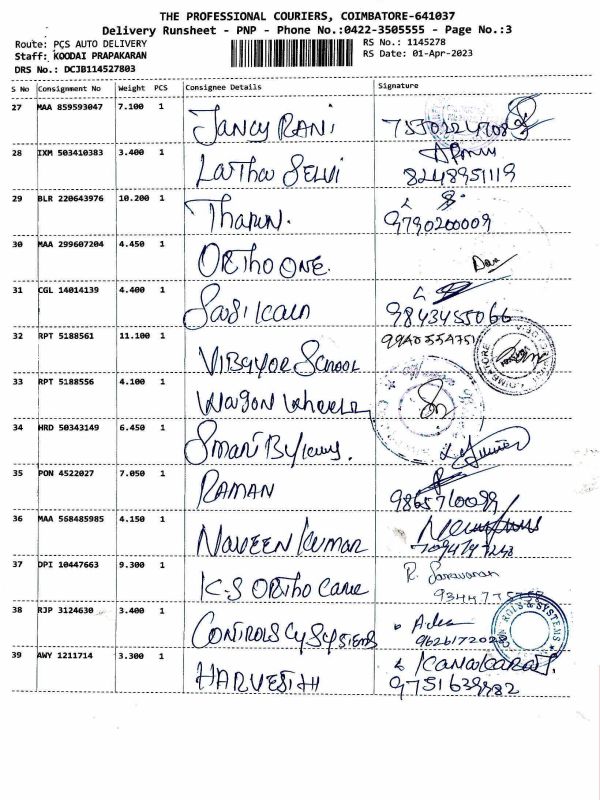 THE PROFESSIONAL COURIERS, COIMBATORE-641037
Delivery Runsheet - PNP - Phone No.:0422-3505555 - Page No.:3
Route: PCS AUTO DELIVERY RS No.: 1145278
Staff: KOODAI PRAPAKARAN RS Date: 01-Apr-2023
DRS No.: DCJB114527803
S No Consignment No Weight PCS Consignee Details Signature
27 MAA 859593047 7.100 1 JANCY RANI
28 IXM 503410383 3.400 1 Laitha Selvi 8248951119
29 BLR 220643976 10.200 1 Tharun. 9790200009
30 MAA 299607204 4.450 1 Ortho One.
31 CGL 14014139 4.400 1 Sasikala 9843455066
32 RPT 5188561 11.100 1 Vibgyor School 9940554751
33 RPT 5188556 4.100 1 Wagon Wheels
34 HRD 50343149 6.450 1 Smart
35 PON 4522027 7.050 1 RAMAN 9865710099
36 MAA 568485985 4.150 1 Naveen Kumar
37 DPI 10447663 9.300 1 K-S Ortho Care R. Saravanan
38 RJP 3124630 3.400 1 Controls Cy Systems
39 AWY 1211714 3.300 1 HARVESTHI KANAKARAJ
9751639982